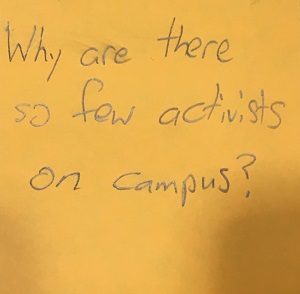 Why are there
so few activists
on campus?